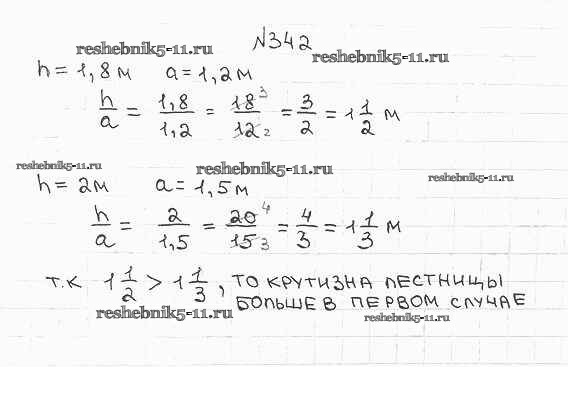 №342
reshebnik5-11.ru
reshebnik5-11.ru
h = 1,8 м   a = 1,2 м
h/a = 1,8/1,2 = 18 3/12 2 = 3/2 = 1 1/2 м
reshebnik5-11.ru
reshebnik5-11.ru
reshebnik5-11.ru
h = 2 м   a = 1,5 м
h/a = 2/1,5 = 20 4/15 3 = 4/3 = 1 1/3 м
т.к 1 1/2 > 1 1/3, то крутизна лестницы
больше в первом случае
reshebnik5-11.ru
reshebnik5-11.ru